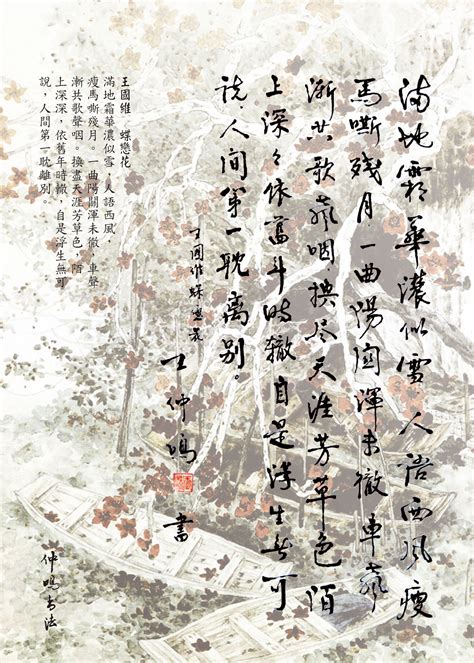 满地霜華濃似雪人语西风瘦
馬嘶残月一曲陽関渾未徹車声
漸共歌声咽换尽天涯芳草色陌
上深々依舊年时辙自是浮生无可
说人间第一耽离别。
王國维蝶恋花
王仲鳴 書
王國維 蝶戀花
滿地霜華濃似雪，人語西風，
瘦馬嘶殘月。一曲陽關渾未徹，車聲
漸共歌聲咽。換盡天涯芳草色，陌
上深深，依舊年時轍，自是浮生無可
說，人間第一耽離別。
仲鳴书法